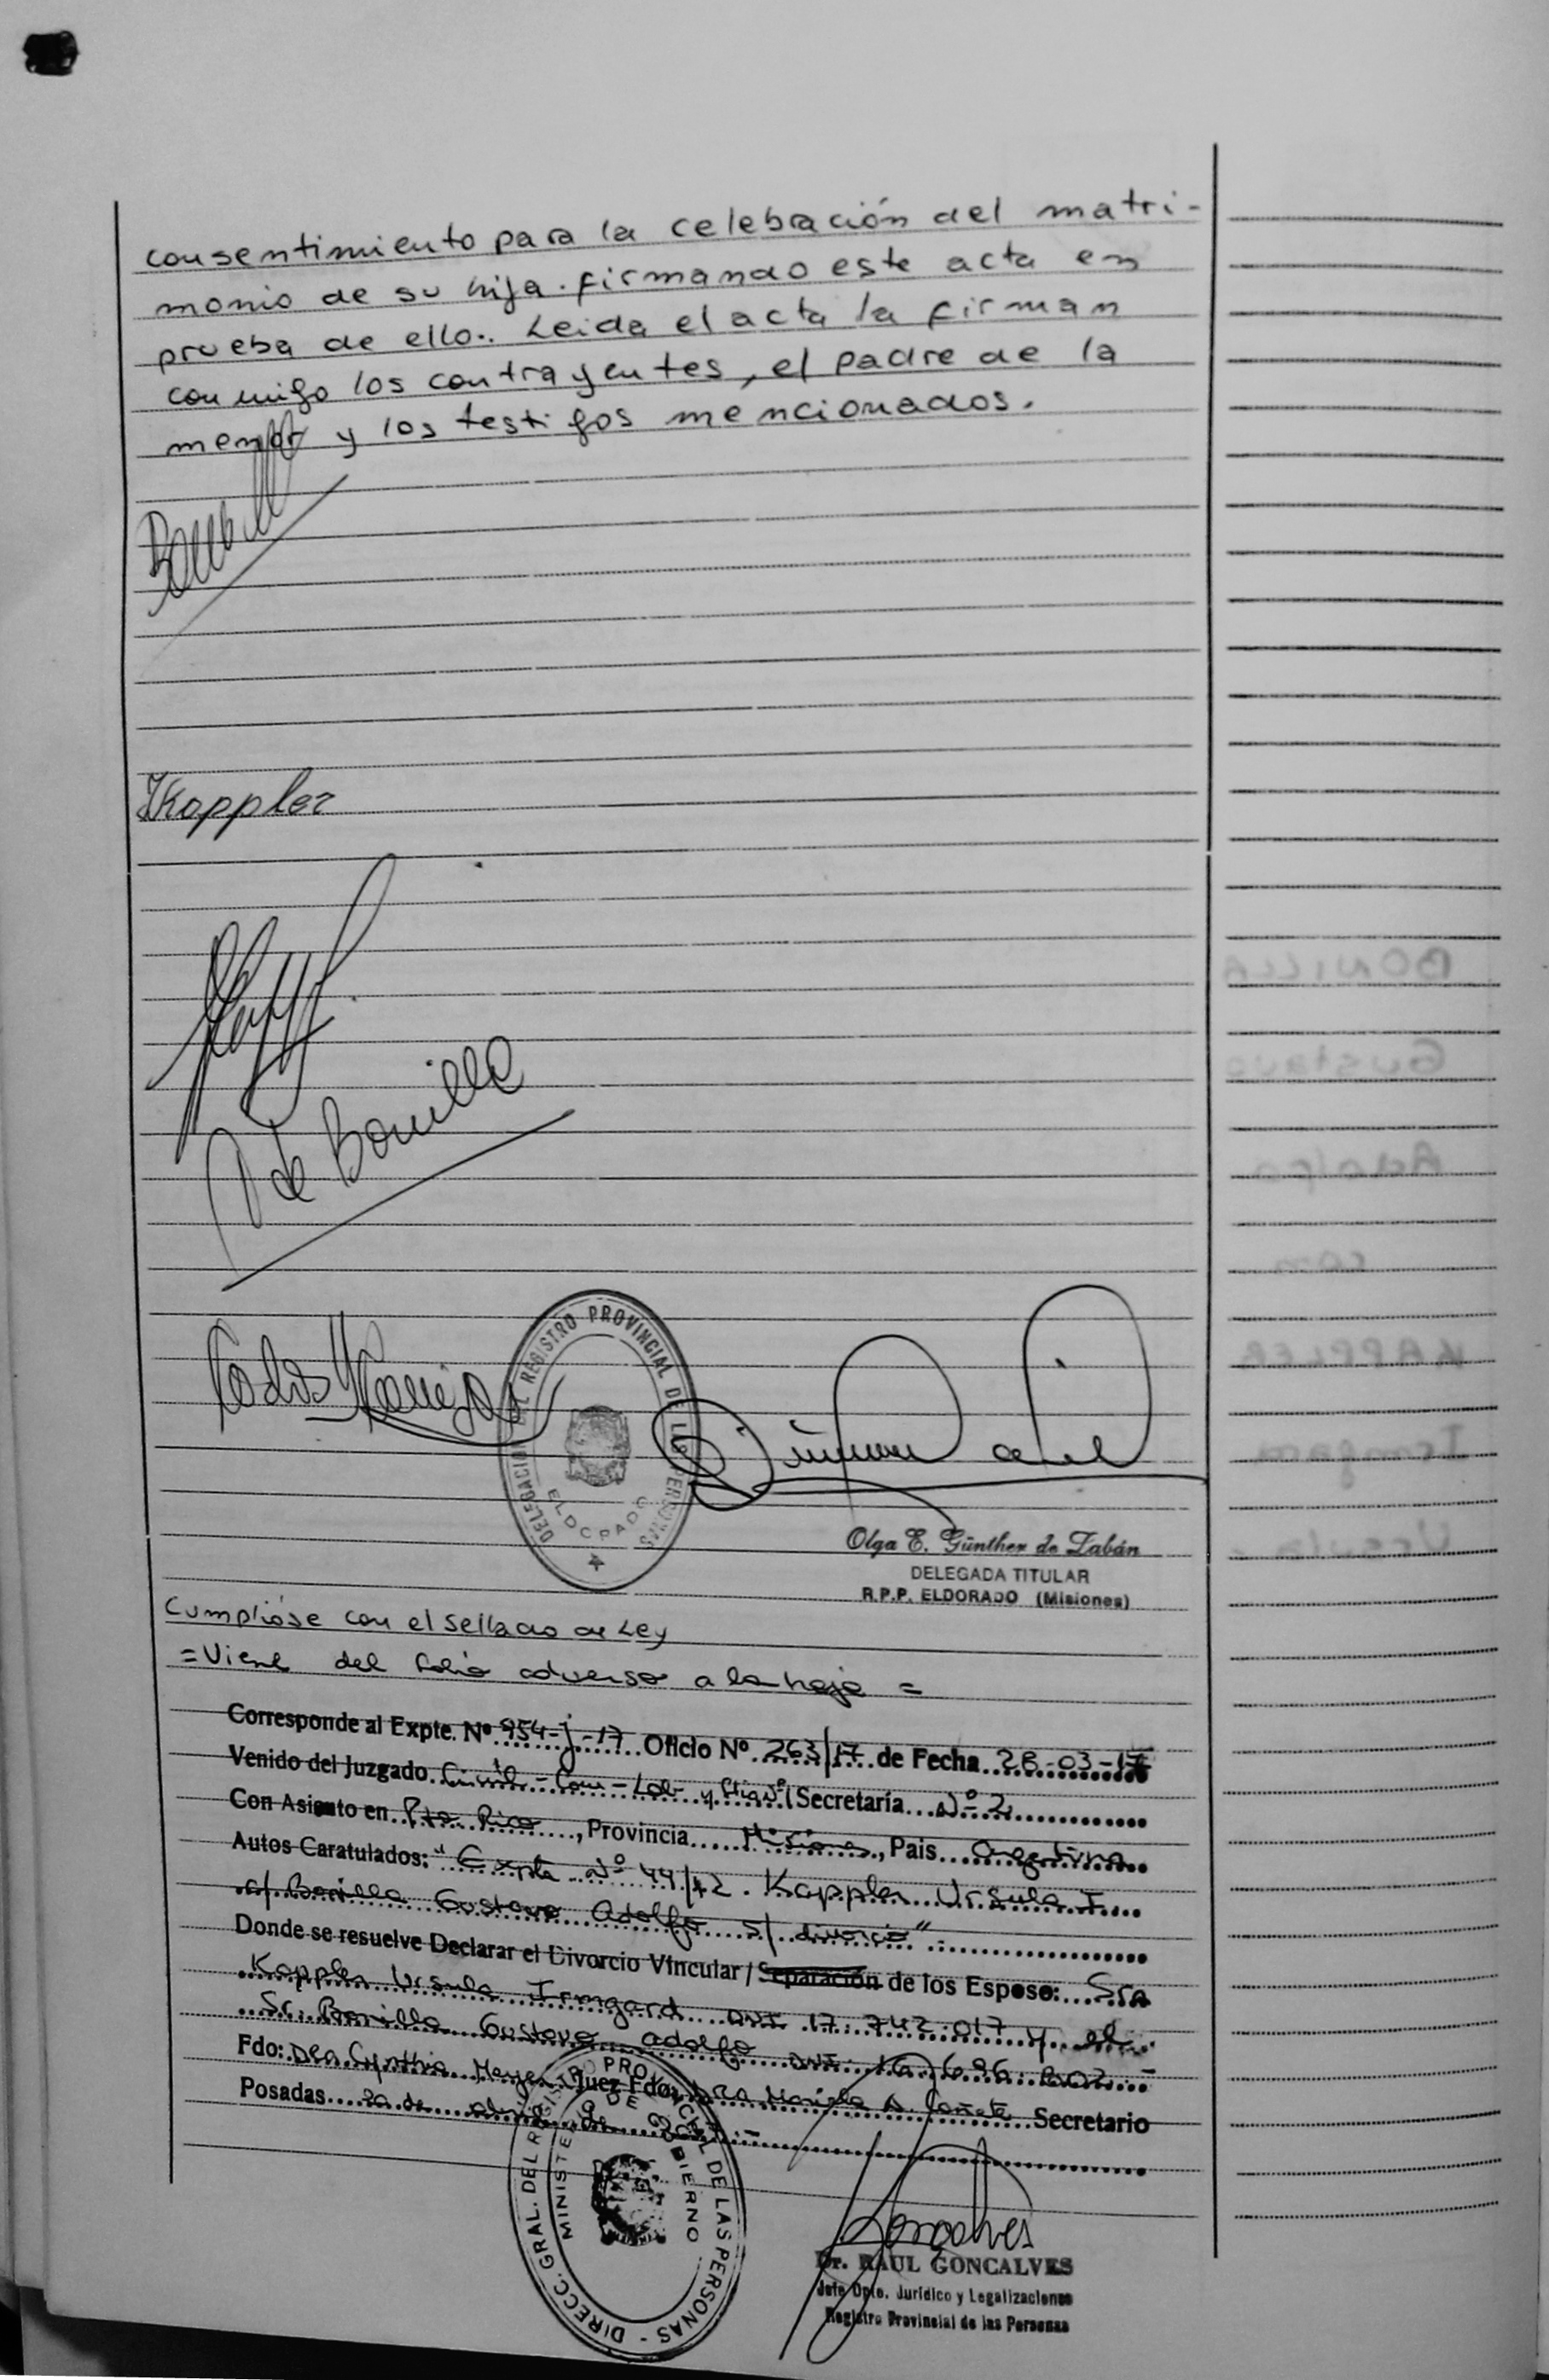 consentimiento para la celebración del matri-
monio de su hija. firmando este acta en
prueba de ello.. Leida el acta la firman
conmigo los contrayentes, el padre de la
menor y los testigos mencionados.
Kappler
de Bonilla
DELEGACION DEL REGISTRO PROVINCIAL DE LAS PERSONAS
ELDORADO
Olga E. Günther de Zabán
DELEGADA TITULAR
R.P.P. ELDORADO (Misiones)
Cumplióse con el sellado de Ley
=Viene del folio adverso a la hoja =
Corresponde al Expte. Nº 954-j-17 Oficio Nº 263/17 de Fecha 28-03-17
Venido del Juzgado Civil-Com-Lab- y Flia Nº1 Secretaría Nº 2
Con Asiento en Pto Rico, Provincia Misiones, Pais Argentina
Autos Caratulados: "Expte Nº 44/12. Kappler Ursula I.
c/ Bonilla Gustavo Adolfo s/ divorcio".-
Donde se resuelve Declarar el Divorcio Vincular / Separación de los Esposo: Sra
Kappler Ursula Irmgard DNI 17.742.017 y el
Sr. Bonilla Gustavo adolfo DNI
Fdo: Dra Cynthia Juez Fdo: Dra Mariela A. Cañete Secretario
Posadas 20 de abril de
DIRECC. GRAL. DEL REGISTRO PROVINCIAL DE LAS PERSONAS
MINISTERIO DE GOBIERNO
Goncalves
Dr. RAUL GONCALVES
Jefe Dpto. Jurídico y Legalizaciones
Registro Provincial de las Personas
BONILLA
Gustavo
Adolfo
con
KAPPLER
Irmgard
Ursula